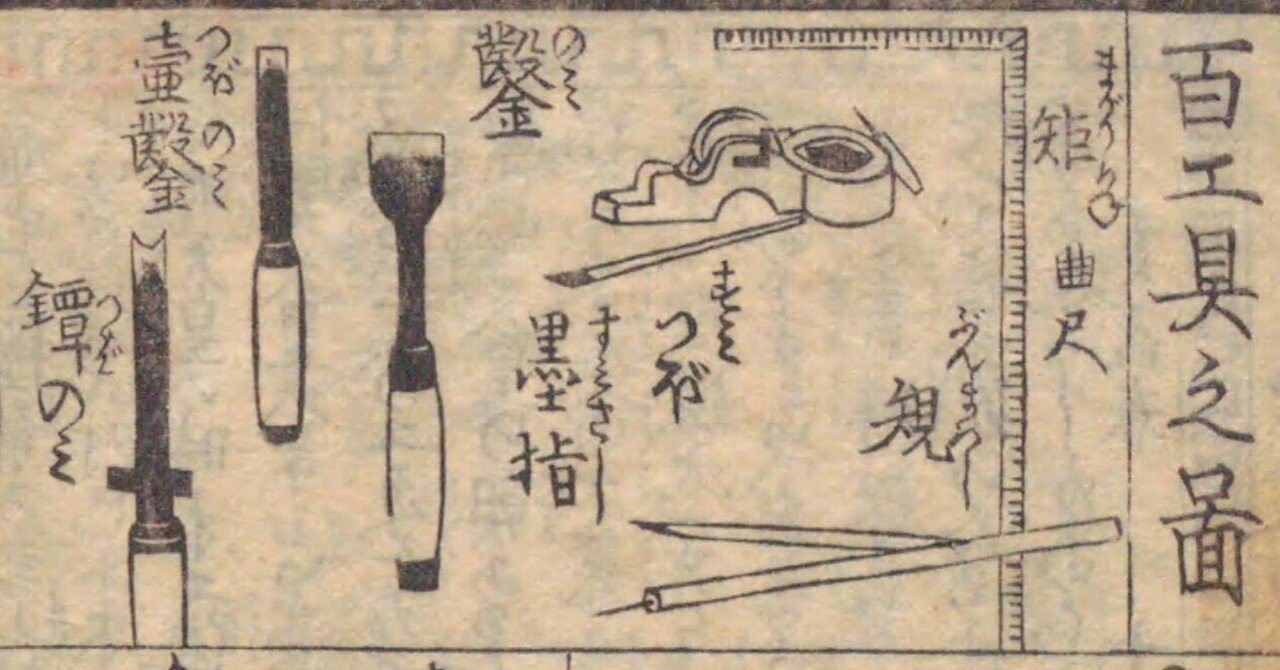 百工具之圖
まがりかね
矩
曲尺
ぶんまわし
規
すみ
つぼ
すみさし
墨指
のみ
鑿
つぼのみ
壷鑿
つば
鐔のミ